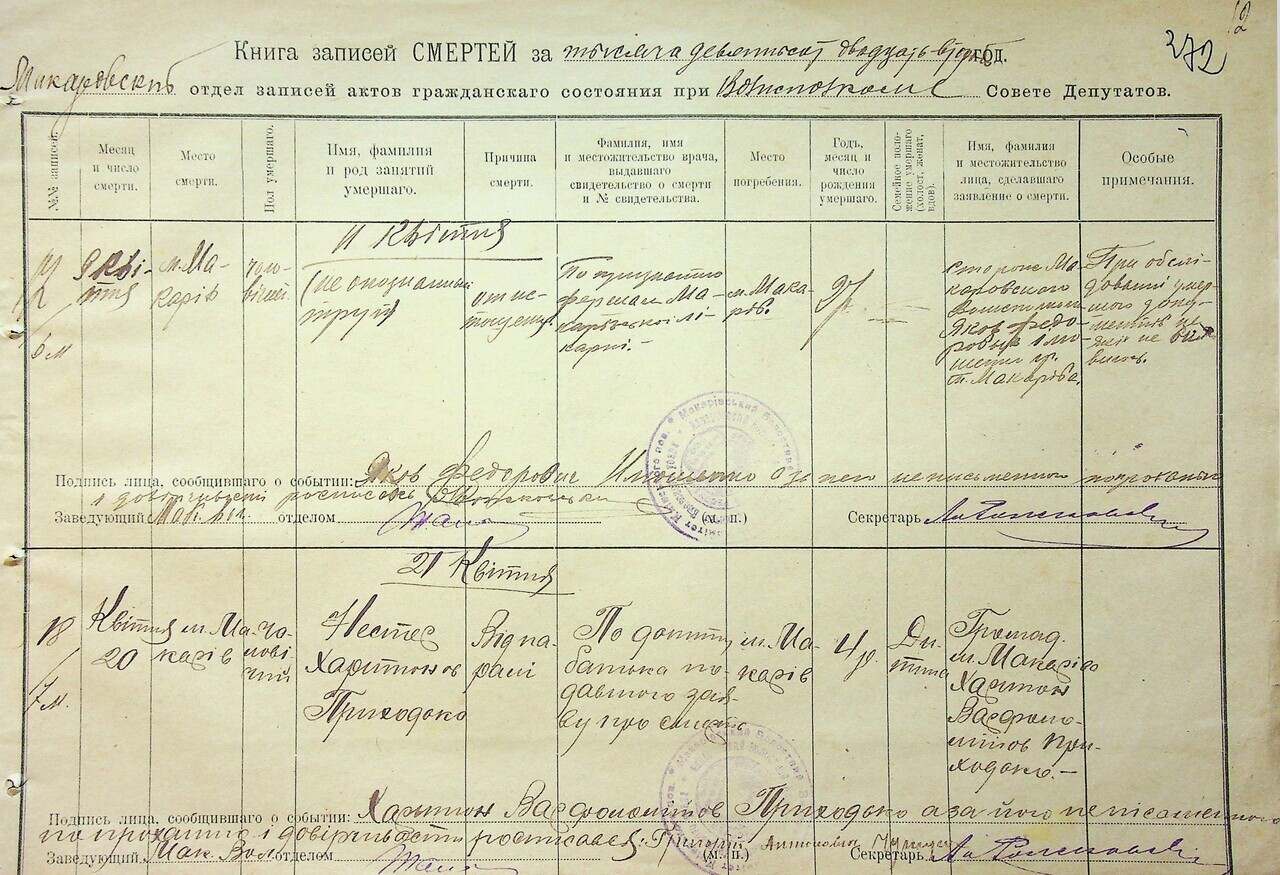 12
272
Книга записей СМЕРТЕЙ за тысяча девятьсот двадцать второй год.
Макаровский отдел записей актов гражданскаго состояния при Волисполкоме Совете Депутатов.
№№ записей.
Месяц
и число
смерти.
Место
смерти.
Пол умершаго.
Имя, фамилия
и род занятий
умершаго.
Причина
смерти.
Фамилия, имя
и местожительство врача,
выдавшаго
свидетельство о смерти
и № свидетельства.
Место
погребения.
Годъ,
месяц и
число
рождения
умершаго.
Семейное поло-
жение умершаго
(холост, женат,
вдов).
Имя, фамилия
и местожительство
лица, сделавшаго
заявление о смерти.
Особые
примечания.
11 Квітня
9 Кві-
тня
м. Ма-
карів
чоло-
вічий
(не опознаний
труп)
от ис-
тощения
По
Ма-
карівської лі-
карні.-
м. Мака-
рів.
27
6 м
сторож Ма-
каровского
Яков Федо-
рович
гр.
м. Макарова.
При обслі-
дованні умер-
шого доку-
ментів
які не
Подпись лица, сообщившаго о событии: Яков Федорович а за него неписьменного
Заведующий Мак. Вол. отделом
(м. п.)
Секретарь
21 Квітня
18
7 м.
Квітня
20
м. Ма-
карів
Чо-
лові-
чий
Нестер
Харитонов
Приходько
Від па-
ралі
По допиту
батька по-
давшого зая-
ву про смерть
м. Ма-
карів
4 р.
Ди-
тина
Громад.
м. Макарів
Харитон
Варфоло-
мієов При-
ходько.-
Подпись лица, сообщившаго о событии: Харитон Варфоломієов Приходько а за його неписьменного
по проханню і довірчивости росписався: Григорій Антонович
Заведующий Мак. Вол. отделом
(м. п.)
Секретарь